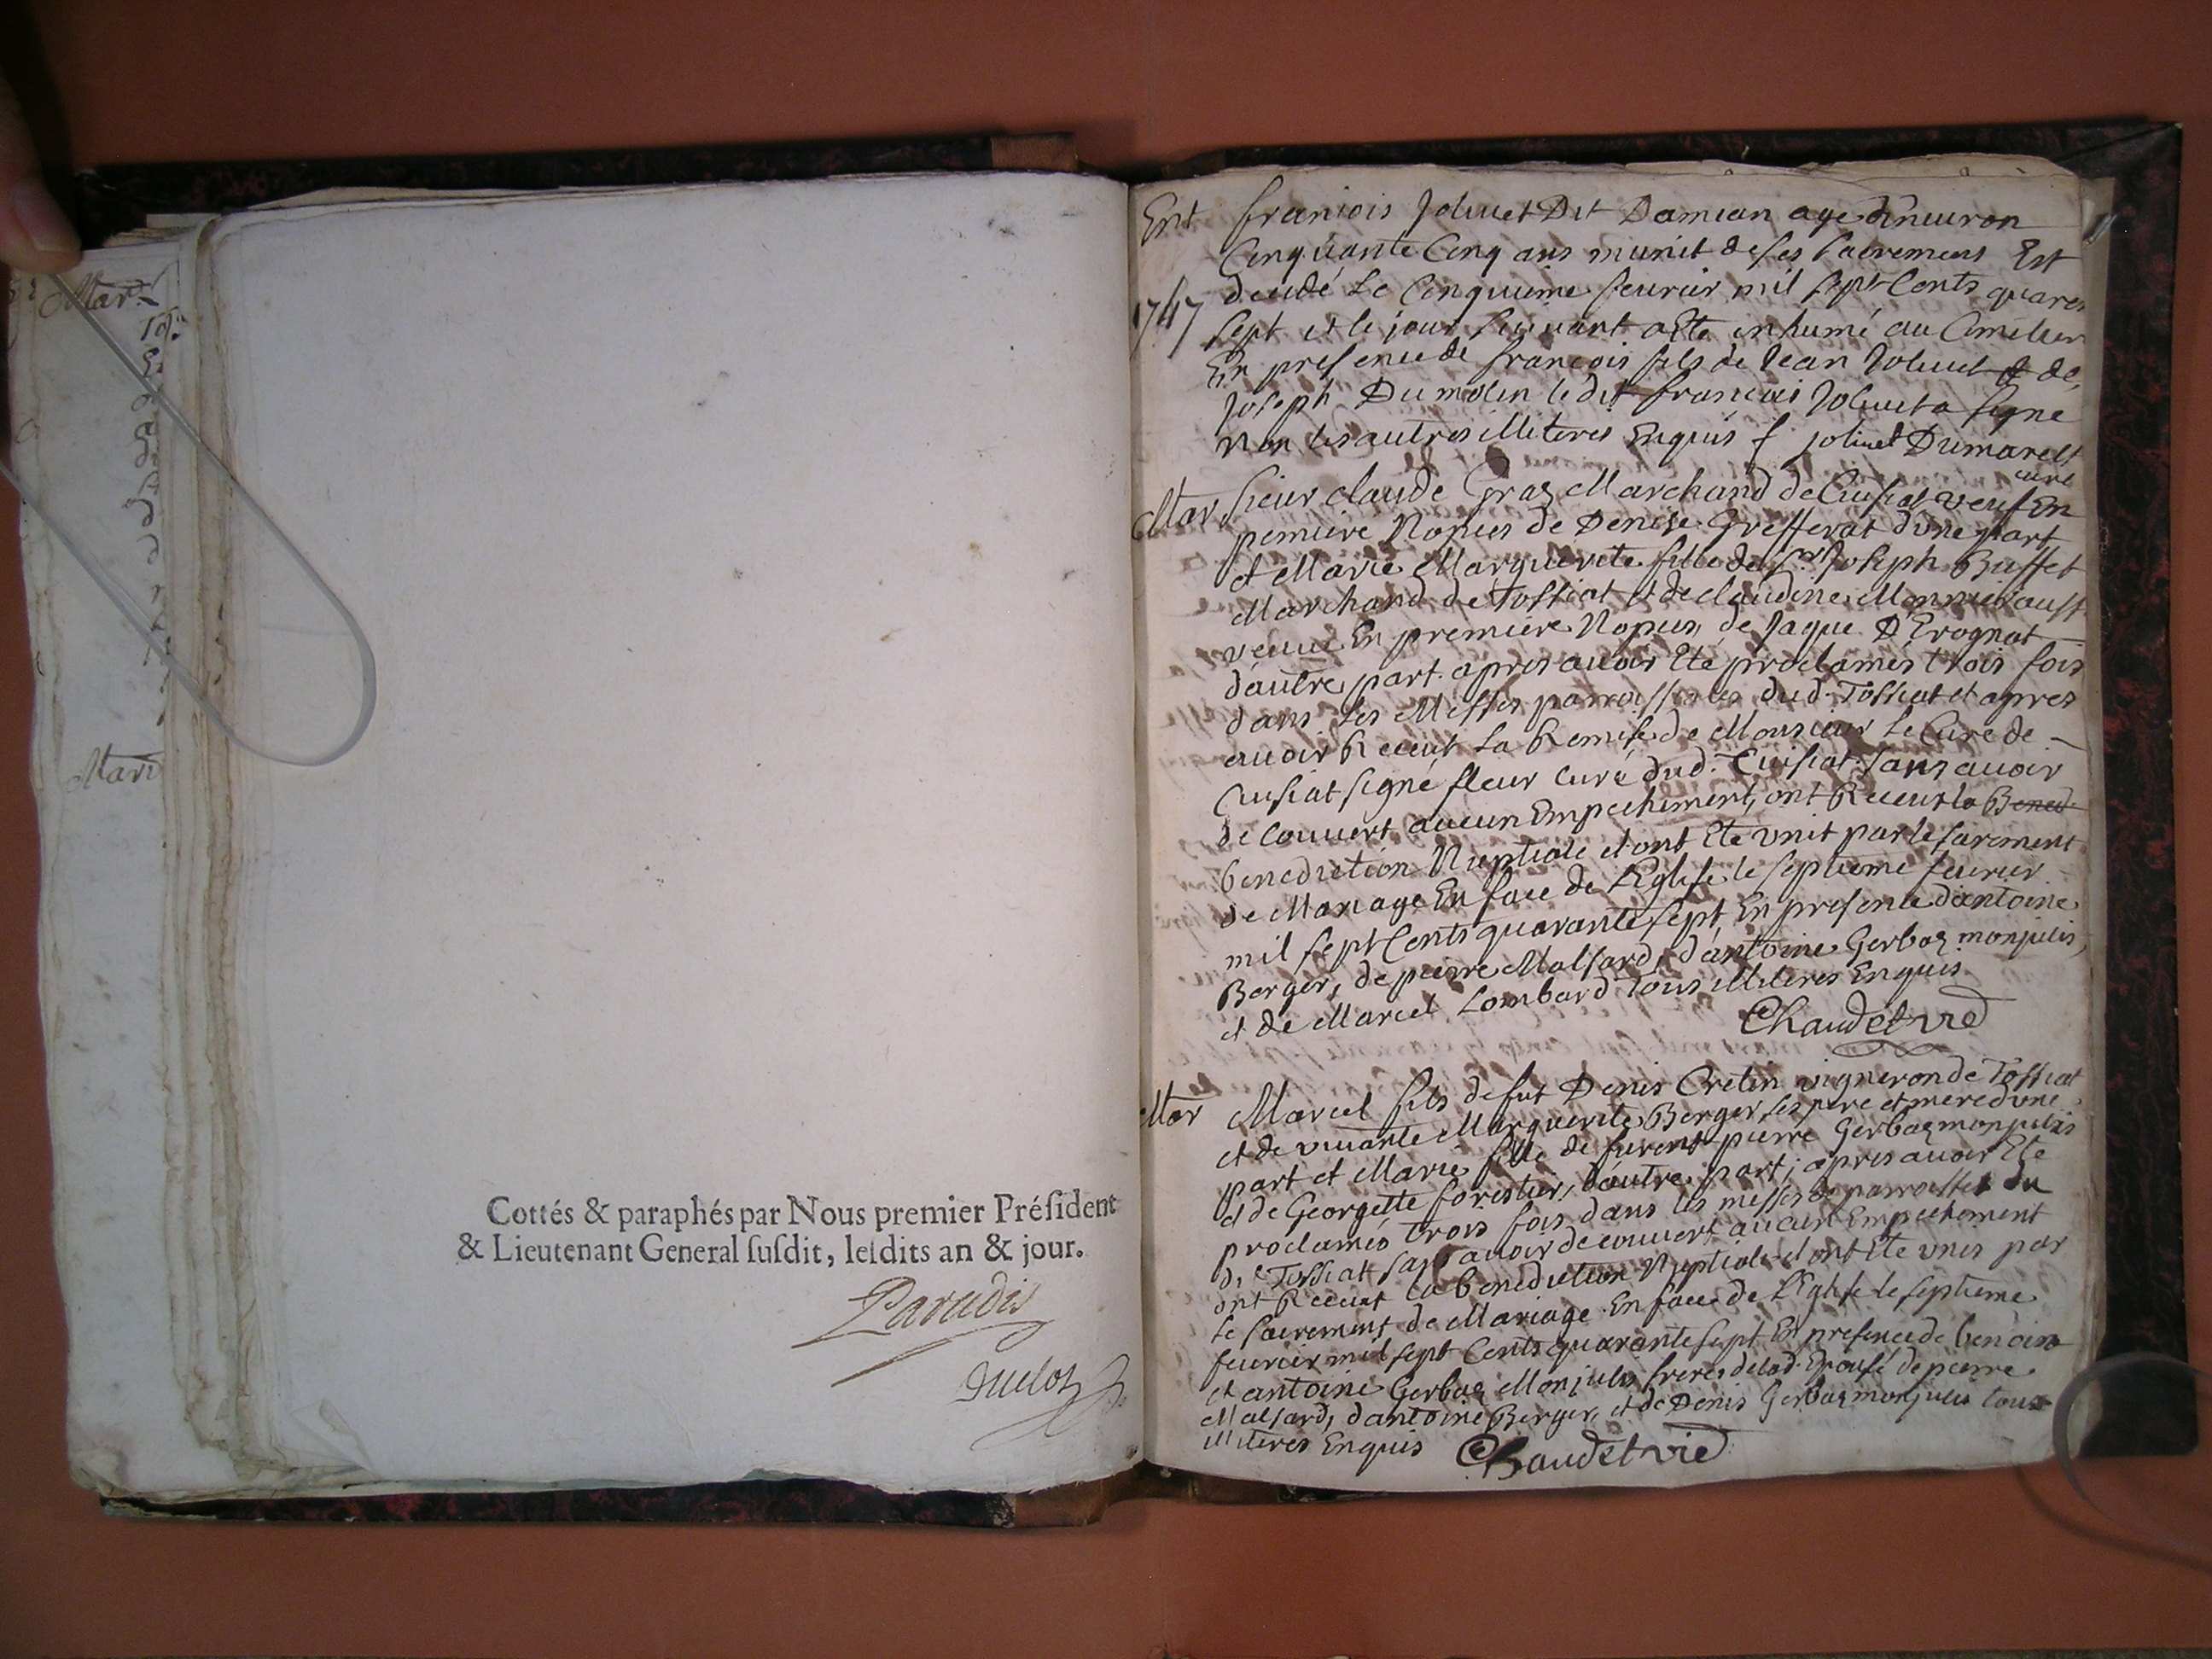 Mar
Mari
Cottés & paraphés par Nous premier Préſident
& Lieutenant General ſuſdit, leſdits an & jour.
Paradis
Duclos
Ent francois Joliuet Dit Damian agé d'enuiron
Cinquante Cinq ans munit de ses sacremens Est
decedé Le Cinquieme feurier mil sept Cents quaran
1747
sept et le jour suiuant a Eté inhumé au Cimetier
En presence de francois fils de Jean Joliuet & de
Joseph Dumolin le dit francois Joliuet a signé
Non les autres illiteres Enquis f joliuet Dumarest
curé
Mar Sieur claude Graz Marchand de Cuisiat veuf En
premiere Nopces de Denise Grefferat d'une part
et Marie Marguerite fille de Sr Joseph Buffet
Marchand de Tossiat et de claudine Monnier aussi
veuue En premiere Nopces de Jaque D'Erognat
d'autre part apres auoir Eté proclamés trois fois
dans les Messes parroissiales dud. Tossiat et apres
auoir Receut la Remise de Monsieur Le Curé de
Cuisiat signé fleur curé dud. Cuisiat sans auoir
decouuert aucun Empechement, ont Receut la Bened
benediction Nuptiale et ont Eté vnit par le sacrement
de Mariage En face de L'Eglise le septieme feurier
mil sept Cents quarante sept En presence d'antoine
Berger, de pierre Malfard, d'antoine Gerbaz monjules,
et de Marcel Lombard Tous illiteres Enquis
Chaudet vic
Mar Marcel fils de fut Denis Cretin vigneron de Tossiat
et de viuante Marguerite Berger ses pere et mere d'vne
part et Marie fille de furent pierre Gerbaz monjules
et de Georgette forestier, d'autre part; apres auoir Eté
proclamés trois fois dans les messes de parroisse du
dt Tossiat sans auoir decouuert aucun Empechement
ont Receut la benediction Nuptiale et ont Eté vnis par
le sacrement de Mariage En face de L'Eglise le septieme
feurier mil sept Cents quarante sept En presence de benoist
et antoine Gerbaz Monjules freres de lad. Epouse de pierre
Malfard, d'antoine Berger, et de Denis Gerbaz monjules tous
illiteres Enquis Chaudet vic